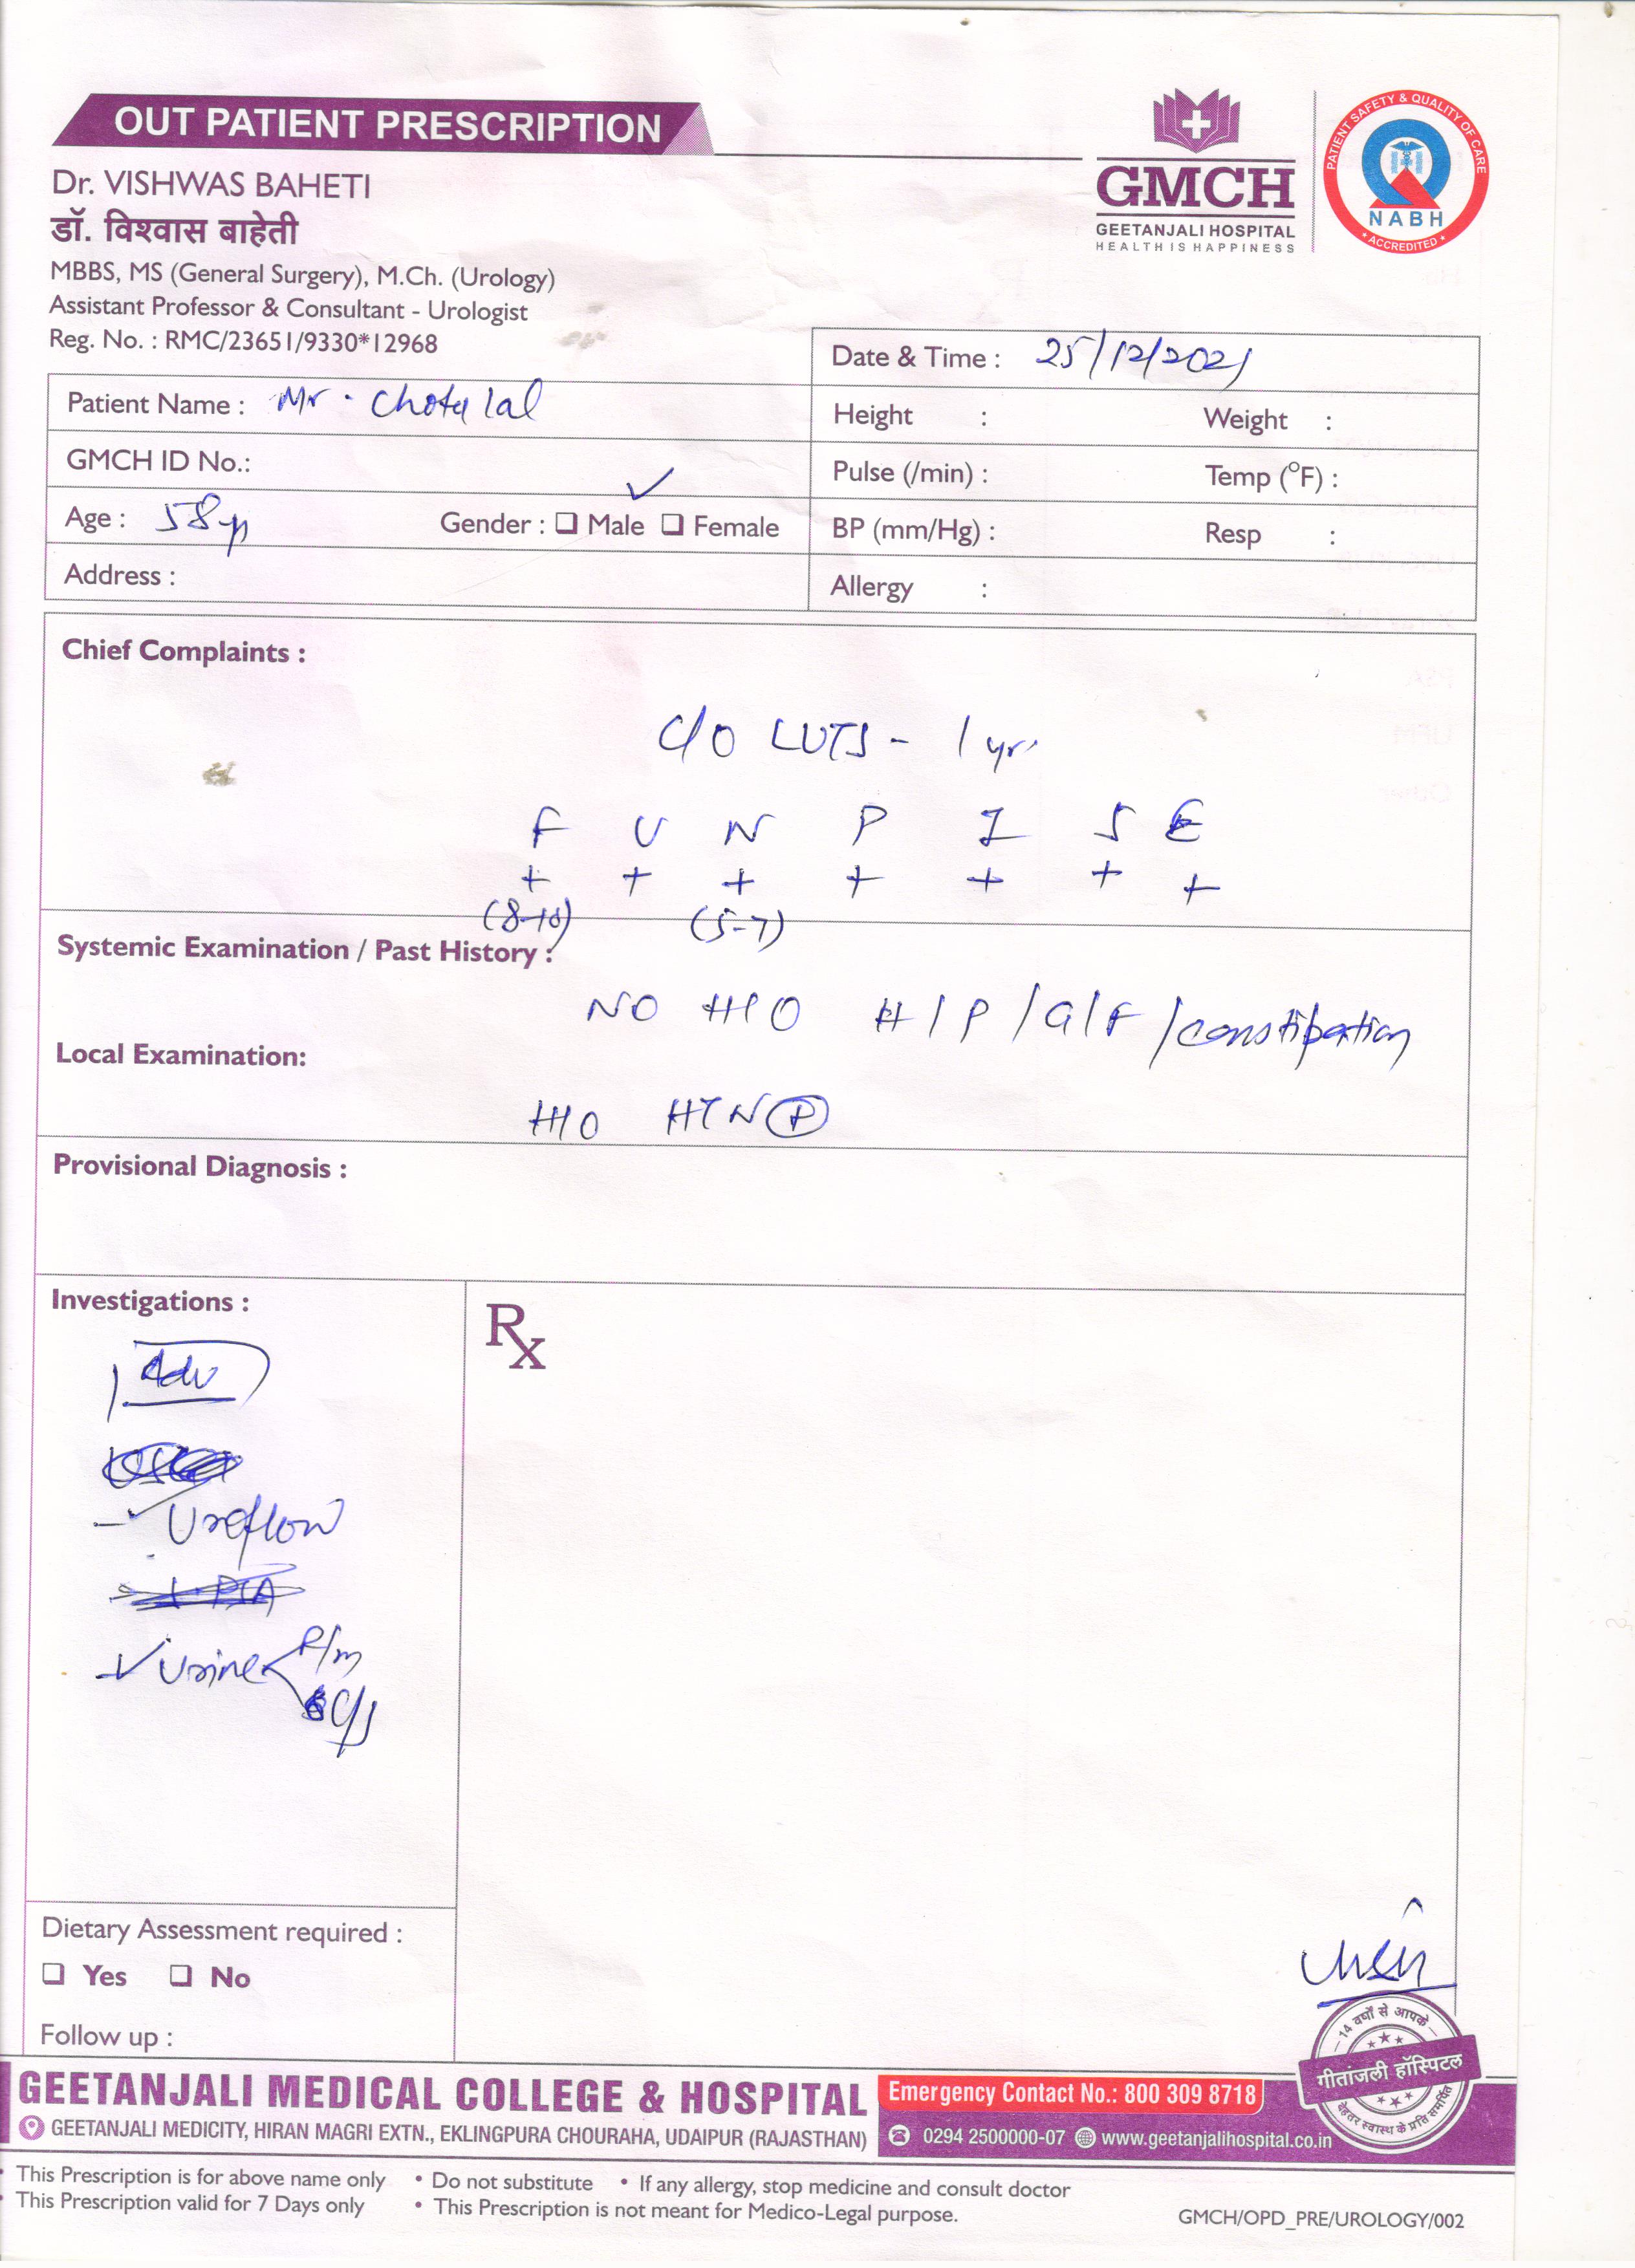 OUT PATIENT PRESCRIPTION
GMCH
GEETANJALI HOSPITAL
HEALTH IS HAPPINESS
PATIENT SAFETY & QUALITY OF CARE
NABH
* ACCREDITED *
Dr. VISHWAS BAHETI
डॉ. विश्वास बाहेती
MBBS, MS (General Surgery), M.Ch. (Urology)
Assistant Professor & Consultant - Urologist
Reg. No. : RMC/23651/9330*12968
Date & Time : 25/12/2021
Patient Name : Mr. Chotalal
Height : Weight :
GMCH ID No.:
Pulse (/min) : Temp (°F) :
Age : 58 yr Gender : ❑ Male ❑ Female
BP (mm/Hg) : Resp :
Address :
Allergy :
Chief Complaints :
C/O LUTS - 1 yr.
F U N P I S E
+ + + + + + +
(8-10) (5-7)
Systemic Examination / Past History :
NO H/O H/P/G/F/constipation
Local Examination:
H/O HTN (+)
Provisional Diagnosis :
Investigations :
Rx
Adv
- Uroflow
Urine R/m
C/S
Dietary Assessment required :
❑ Yes ❑ No
Follow up :
14 वर्षों से आपके
गीतांजली हॉस्पिटल
बेहतर स्वास्थ के प्रति समर्पित
GEETANJALI MEDICAL COLLEGE & HOSPITAL
Emergency Contact No.: 800 309 8718
GEETANJALI MEDICITY, HIRAN MAGRI EXTN., EKLINGPURA CHOURAHA, UDAIPUR (RAJASTHAN)
0294 2500000-07 www.geetanjalihospital.co.in
• This Prescription is for above name only • Do not substitute • If any allergy, stop medicine and consult doctor
• This Prescription valid for 7 Days only • This Prescription is not meant for Medico-Legal purpose.
GMCH/OPD_PRE/UROLOGY/002